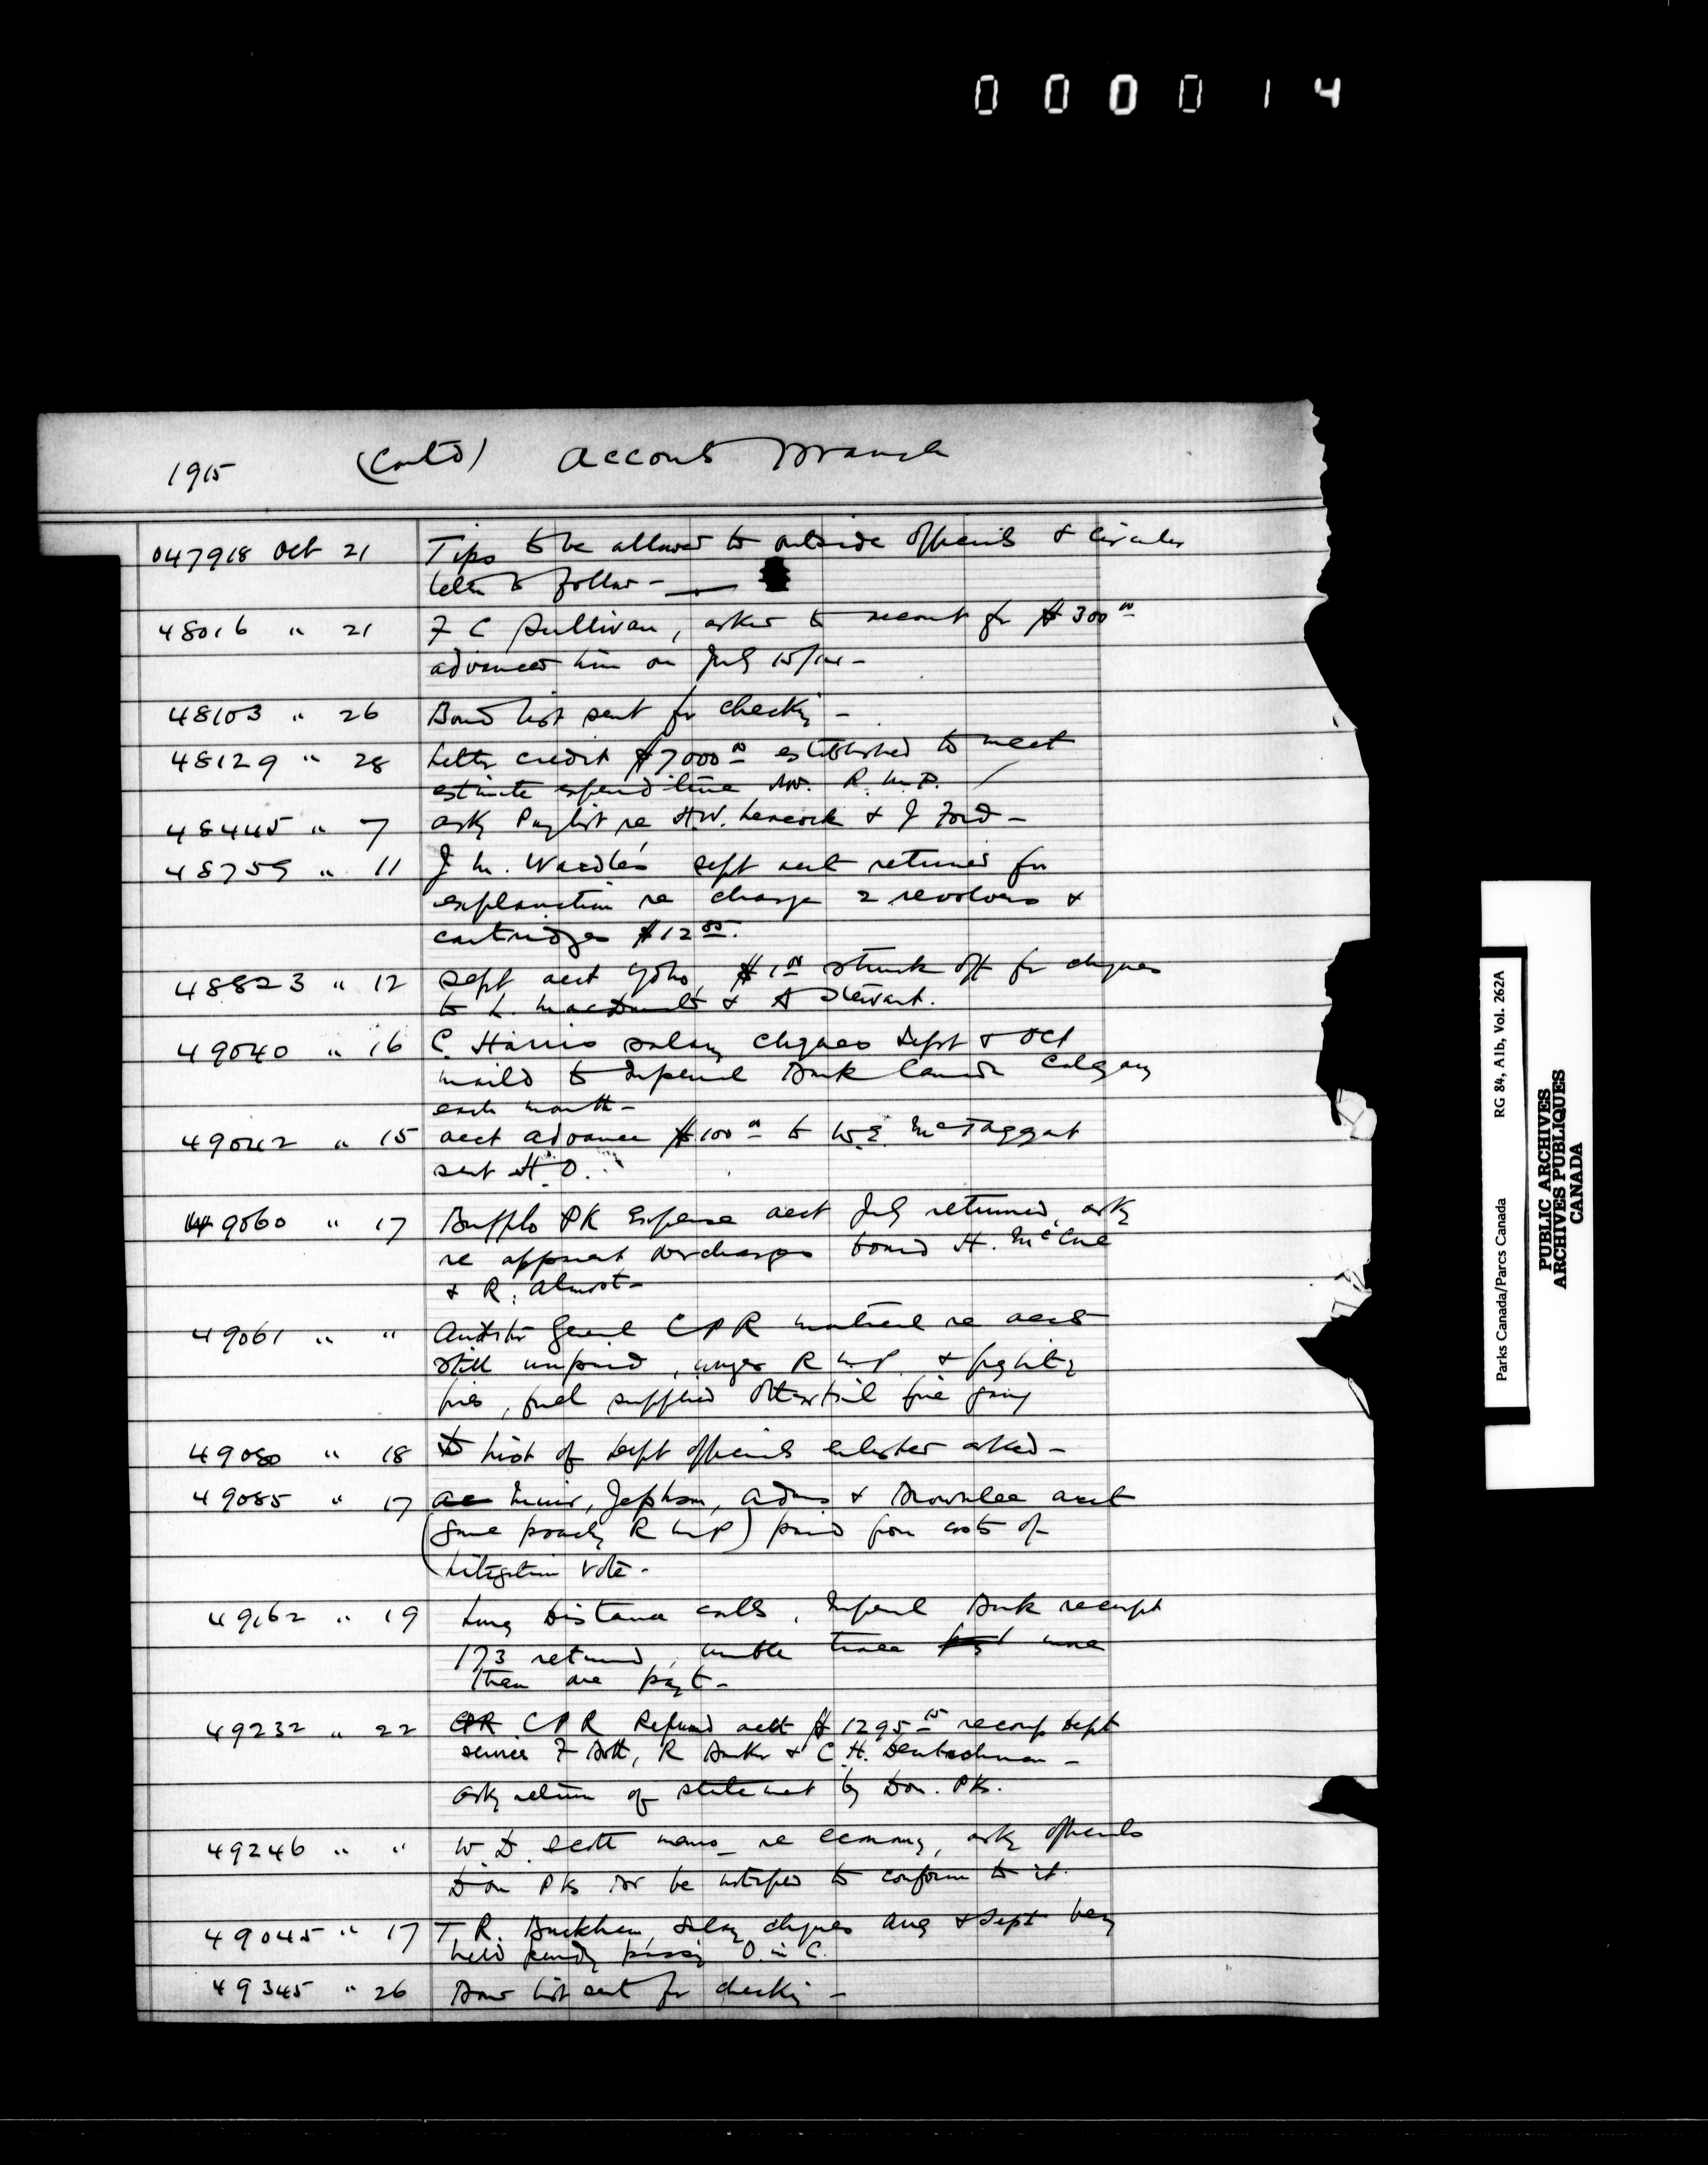 000014
1915 (Contd) Accounts Branch
047918 Oct 21 Tips to be allowed to outside officials & circular
letter to follow -
48016 " 21 F C Sullivan, asked to account for $300 00
advanced him on July 15/14 -
48103 " 26 Bond list sent for checking -
48129 " 28 Letter credit $7000 00 established to meet
estimate expenditure Nov. R. M. P.
48445 " 7 asks Paylist re H.W. & J Ford -
48759 " 11 J M. Wardle's Sept acct returned for
explanation re charge 2 revolvers &
cartridges $12 85.
48823 " 12 Sept acct Yoho $1 00 struck off for cheques
to L. MacDonald & A Stewart.
49040 " 16 C. Harris salary cheques Sept & Oct
mailed to Imperial Bank Canada Calgary
each month -
49042 " 15 acct advance $100 00 to W.E. McTaggart
sent H.O.
49060 " 17 Buffalo PK Expense acct July returned, asks
re apparent overcharges board H. McCue
& R.
49061 " " Auditor General CPR Montreal re accts
still unpaid, wages R M P & fighting
fires, fuel supplied Ottertail fire gang
49080 " 18 List of Dept officials enlisted asked -
49085 " 17 Muir, Jephson, Adams & Brownlee acct
(game poachg R M P) paid from costs of
Litigation vote -
49162 " 19 Long Distance calls, Imperial Bank receipt
173 returned, unable trace more
than one payt -
49232 " 22 CPR CPR Refund acct $1295 15 receipt Dept
service F Bott, R & C. H. Deutschman -
asks return of statement by Dom. Pks.
49246 " " W. D. Scott memo re economy, asks officials
Dom Pks Br be notified to conform to it
49045 " 17 T. R. Buckham Salary cheques Aug & Sept being
held pending passing O. in C.
49345 " 26 Bond list sent for checking -
Parks Canada/Parcs Canada RG 84, A1b, Vol. 262A
PUBLIC ARCHIVES
ARCHIVES PUBLIQUES
CANADA